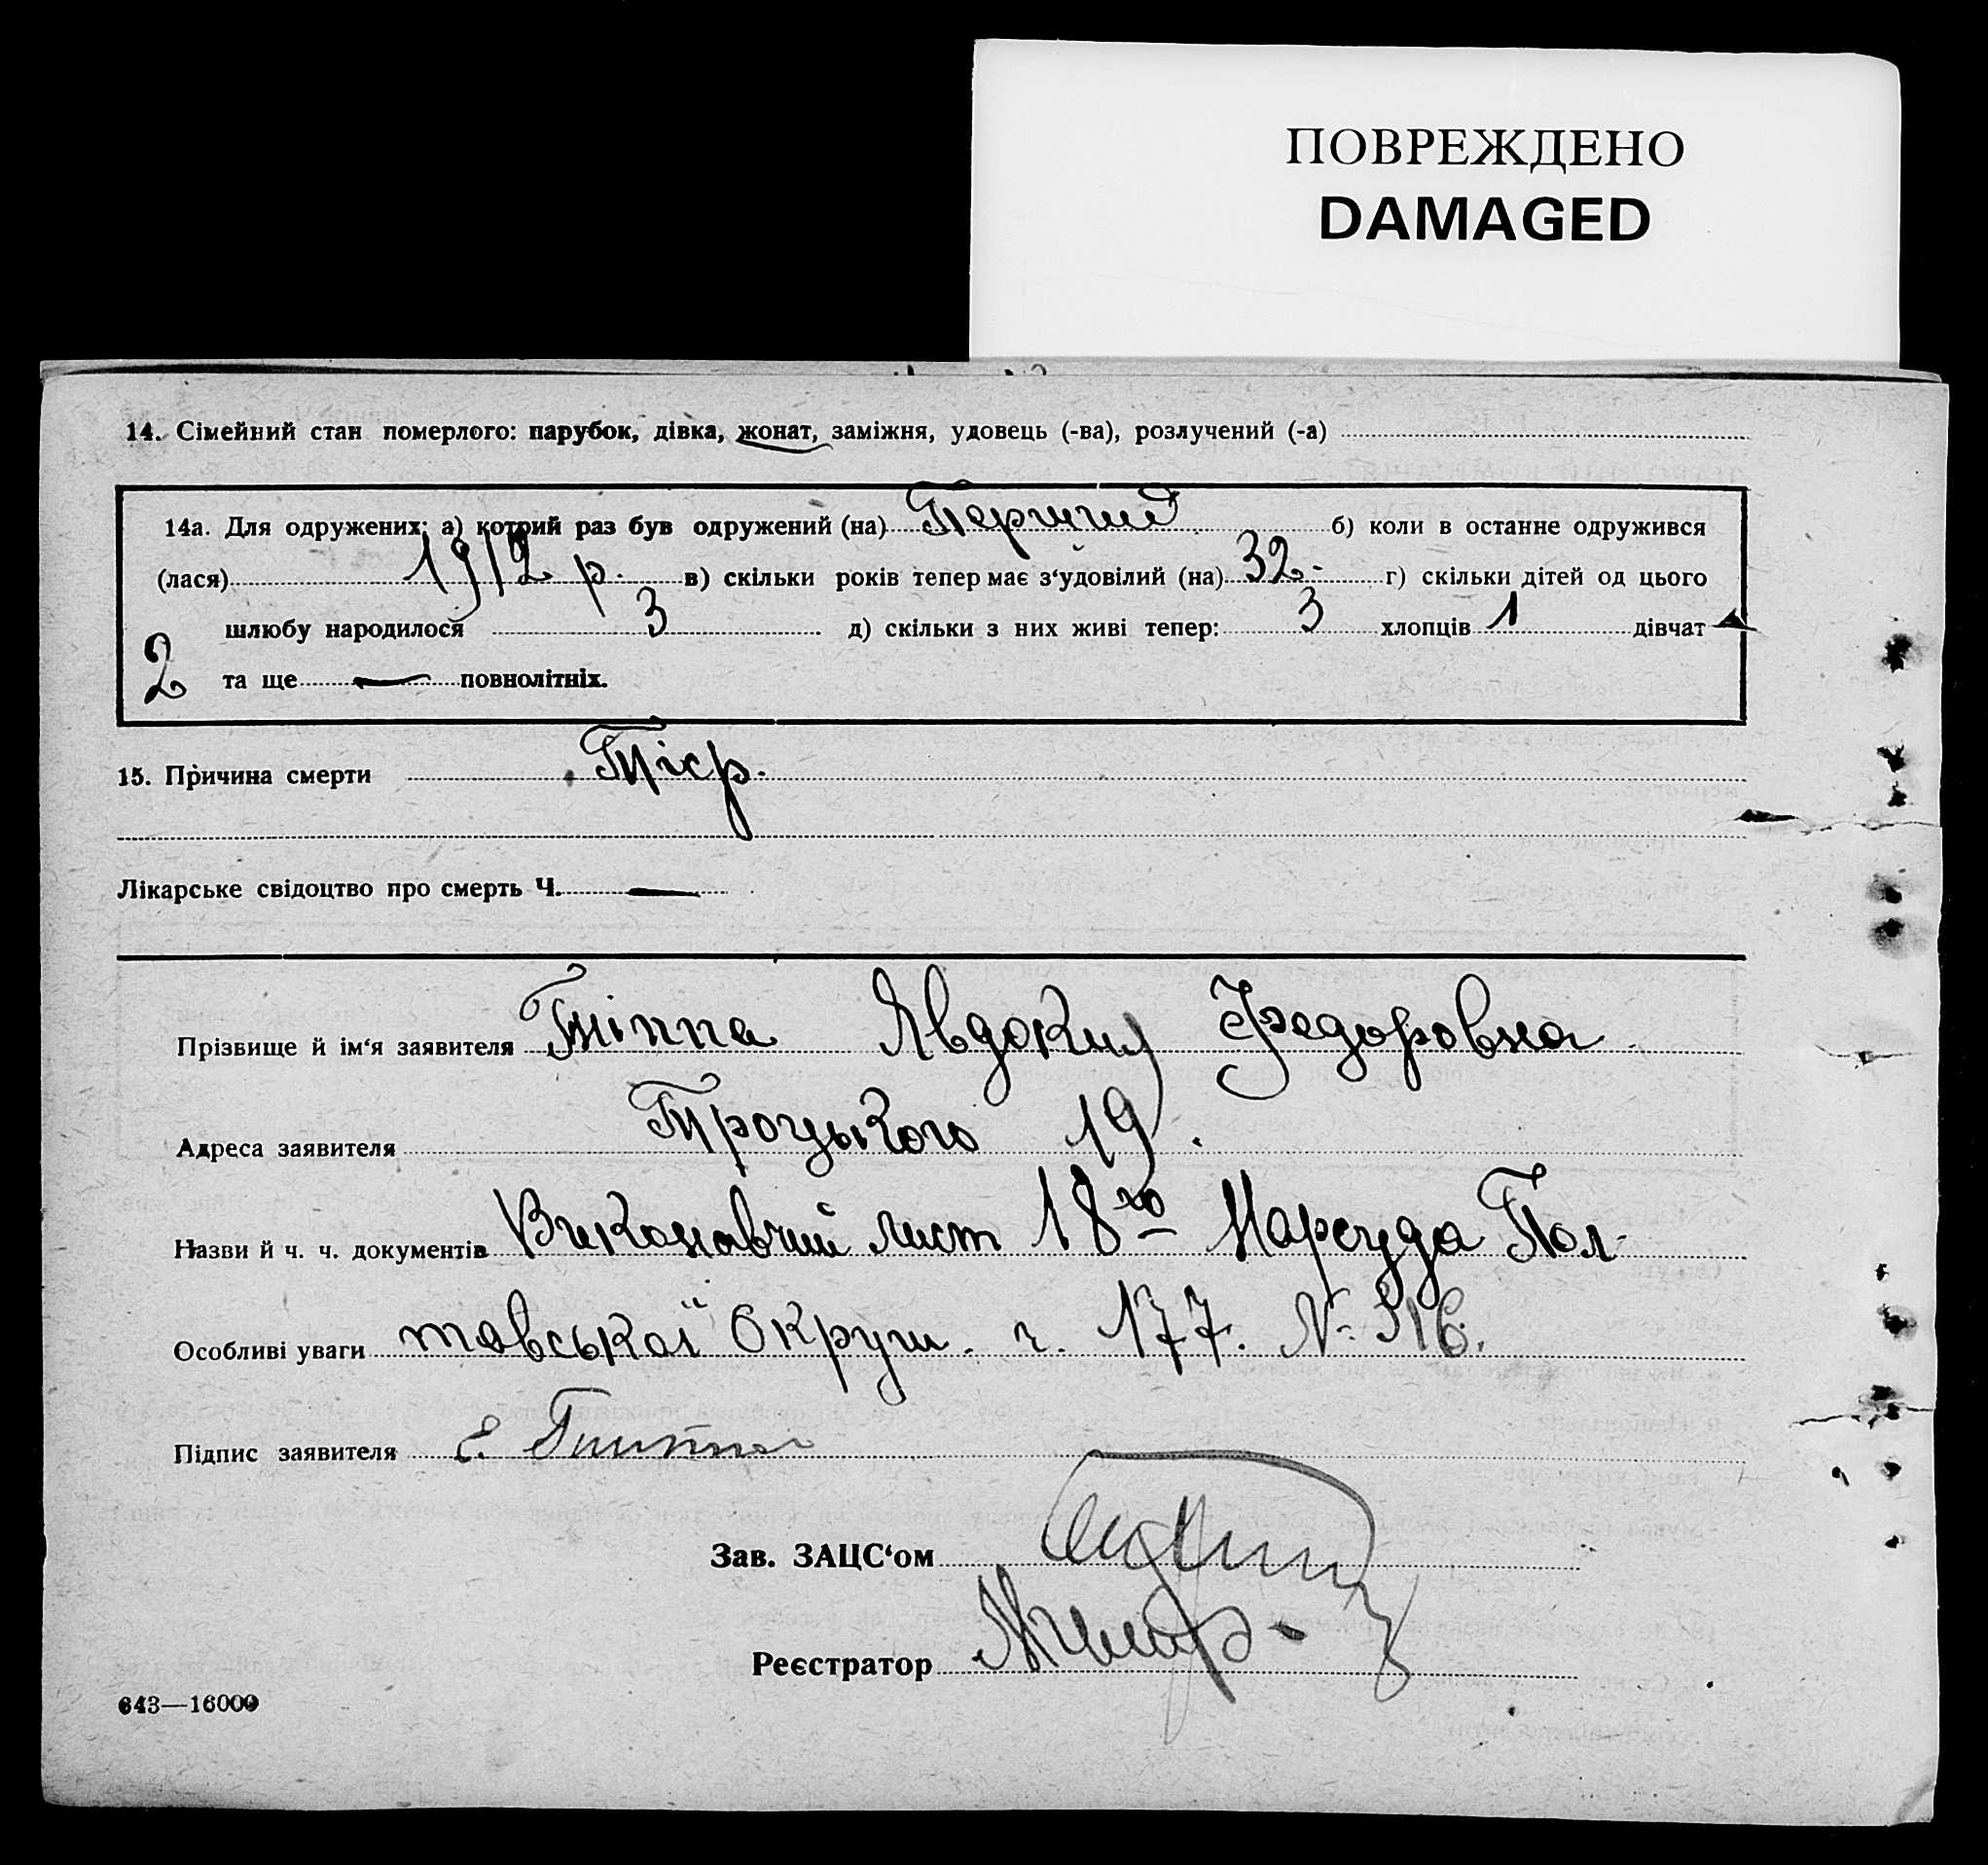 ПОВРЕЖДЕНО
DAMAGED
14. Сімейний стан померлого: парубок, дівка, жонат, заміжня, удовець (-ва), розлучений (-а)
14а. Для одружених: а) котрий раз був одружений (на) Перший б) коли в останнє одружився
(лася) 1912 р. в) скільки років тепер має з‘удовілий (на) 32. г) скільки дітей од цього
шлюбу народилося 3 д) скільки з них живі тепер: 3 хлопців 1 дівчат
2 та ще — повнолітніх.
15. Причина смерти
Лікарське свідоцтво про смерть Ч. —
Прізвище й ім‘я заявителя Явдокия Федоровна
Адреса заявителя Троцького 19.
Назви й ч. ч. документів Виконавчий лист 18го Нарсуда Пол-
Особливі уваги тавської Округи. ч. 177. №
Підпис заявителя Е.
Зав. ЗАЦС‘ом
Реєстратор
643—16000